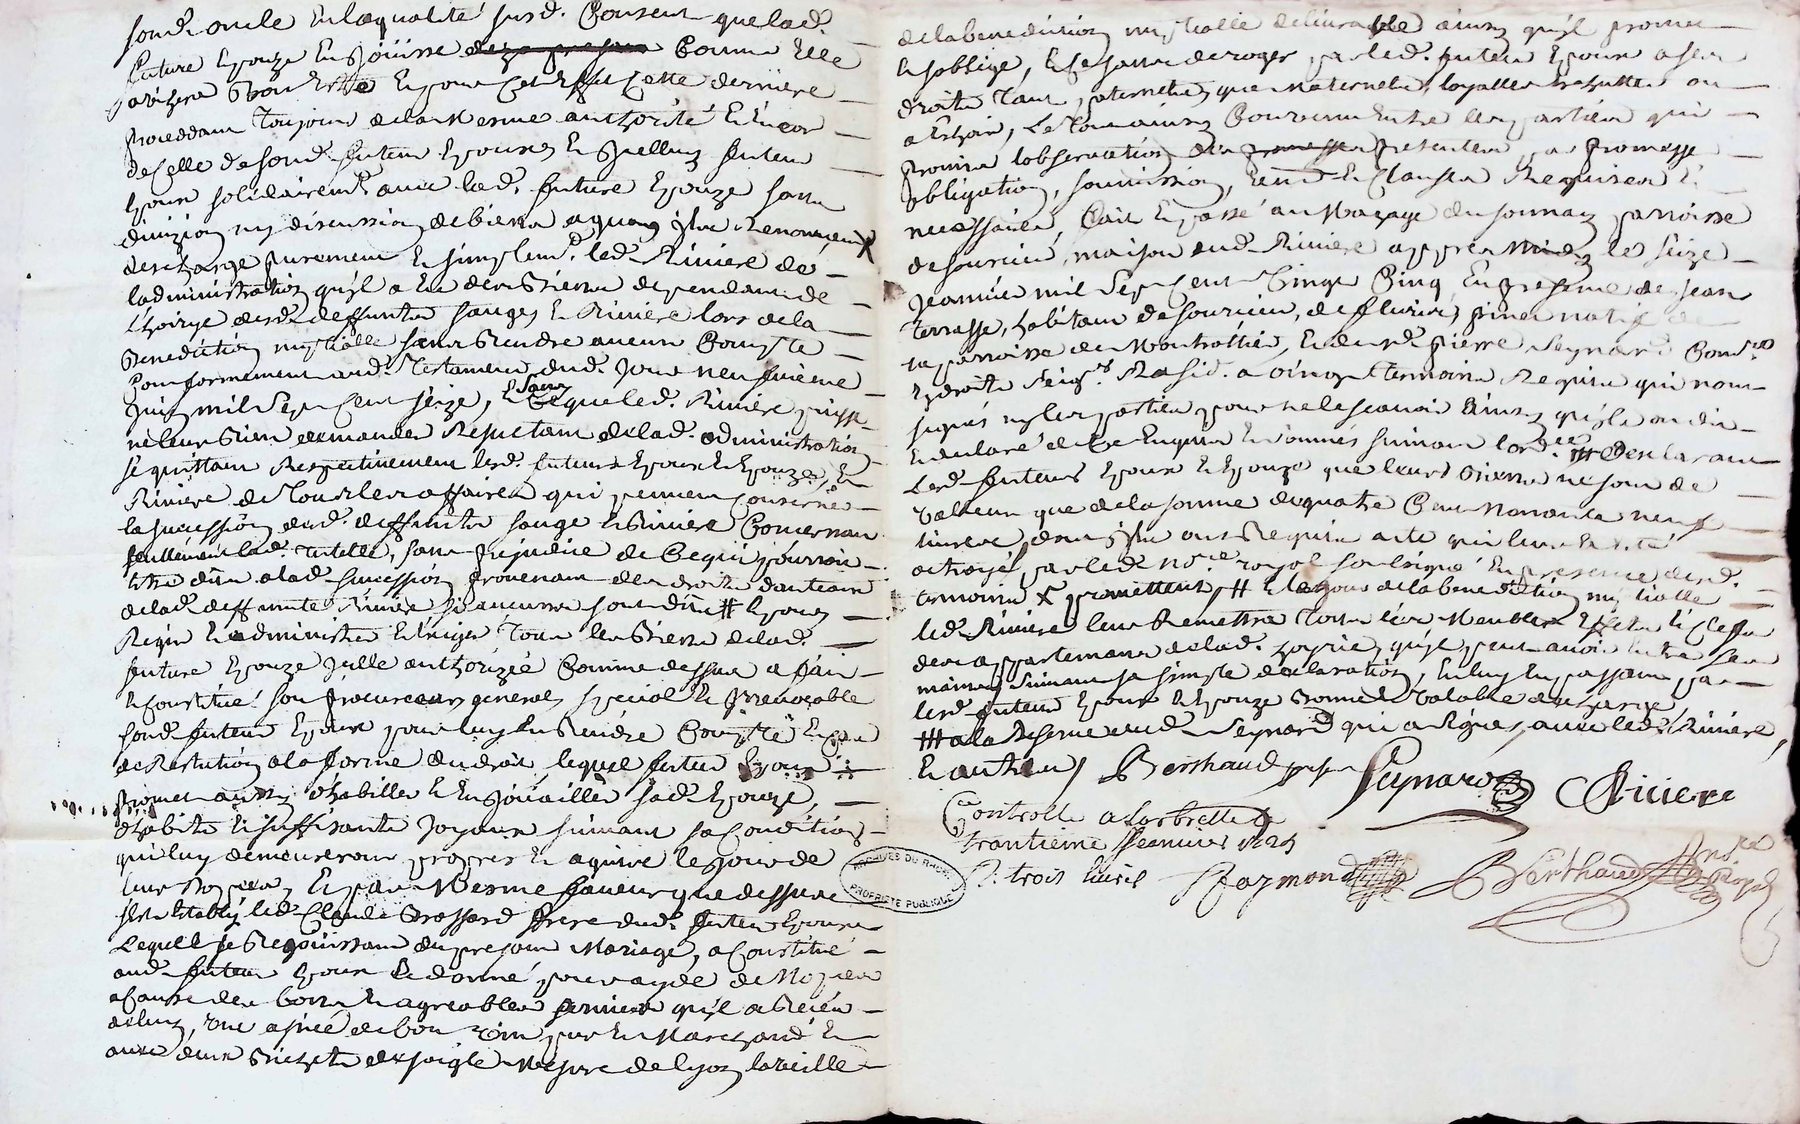 sond. oncle en laqualité susd. Consent que lad.
future Epouze En Jouisse Comme Elle
avizera bon Estre Et pour Cet Effet Cette derniere
proceddant toujours de la mesme authorité Et Encor
de Celle desond. futur Epoux, Lequel futur
Epoux solidairemt. avec lad. future Epouze sans
division ny discussion de biens a quoy ils Renoncent X
descharge purement Et simplemt. led. Riviere de
ladministration quil a Eu des biens dependants de
Lhoirye desd. deffunts sauge Et Riviere lors de la
Benediction nuptialle sans Rendre aucun Compte
Conformement aud. Testament dud. Jour neufvieme
Juin mil Sept Cent seize, Et sans que led. Riviere puisse
ne leur Rien demander Resultant de lad. administration
se quittant Respectivement lesd. futurs Epoux Et Epouze, Et
Riviere de Tous les affaires qui peuvent Conserner
la succession desd. deffunts sauge Et Riviere Concernant
seullement lad. tutelle, sans prejudice de Ce qui pourroit
estre deub alad. succession provenant des droits
delad. deffunte Riviere sy aucuns sont dûs # Epoux
Regir Et administrer Et Exiger Tous les Biens delad.
future Epouze Icelle authorizée Comme dessus a fait
Et Constitué son procureur general special Et Irrevocable
sond. futur Epoux pour luy En Rendre Compte En Cas
de Restitution ala forme du droit, lequel futur Epoux
promet aussy dhabiller Et En Jouailler sad. Epouze,
dhabits Et suffisants Joyaux suivant sa Condition
qui luy demeureront propres Et aquis le Jour de
leur Nopces, Et par Mesme faveur que dessus
sera Etably led. Claude Brossard frere dud. futur Epoux
Lequel se Rejouissant du present Mariage, a Constitué
aud. futur Epoux Et donné pour ayde de Nopces
a Cause des bons Et agreables services quil a Reçeu
deluy, une asnée de bon vin pur Et Marchand Et
avec deux Bichets de soigle Mesure de Lyon la veille
dela benediction nuptialle delivrable ainsy quil promet
Et soblige, Et se sans deroger par led. futur Epoux a ses
droits Tant paternels que Maternels, loyalles Eschuttes ou
a Eschoir, Le Tout ainsy Convenu Entre les parties qui
promis lobservation des presentes, par promesse
obligation, soumission, Renon. Et Clauses Requises Et
necessaires, fait Et passé au Mazage du sonnay parroisse
de sourcieu, maison dud. Riviere appres Midy le seize
Jeanvier mil Sept Cent Vingt Cinq En presence de Jean
Terrasse, habitant de sourcieu, de fleurieu, natif de
la paroisse de Montrottier, Et de Mr. pierre Peynard Conser.
Es droits seigx. Resid. a oingt temoins Requis qui nont
signés ny les parties pour ne le scavoir ainsy quils ont dit
Et declaré de Ce Enquis Et sommés suivant lordce. ## Declarant
Lesd. futurs Epoux Et Epouze que leurs biens ne sont de
Valleur que de la somme de quatre Cent Nonante neuf
livres, dont ils ont Requis acte qui leur a Esté
octroyé par led. nore. royal soussigné En presence desd.
temoins X promettent # Et le Jour dela benediction nuptialle
led. Riviere leur Remettra Tous les Meubles Effets Et Clefs
des appartemans delad. hoyrie quil peut avoir Entre ses
mains suivant sa simple declaration, Et luy En passant par
lesd. futurs Epoux Et Epouze bonne Et Valable descharge
### a la Reserve dud. Peynard qui a signé, avec led. Riviere,
Et autres / Berthaud Peynard Riviere
Controllé a Larbresle le
trantieme Jeanvier 1725
R. trois livres Raymond Berthaud Nore. Royal
ARCHIVES DU RHONE
PROPRIETE PUBLIQUE